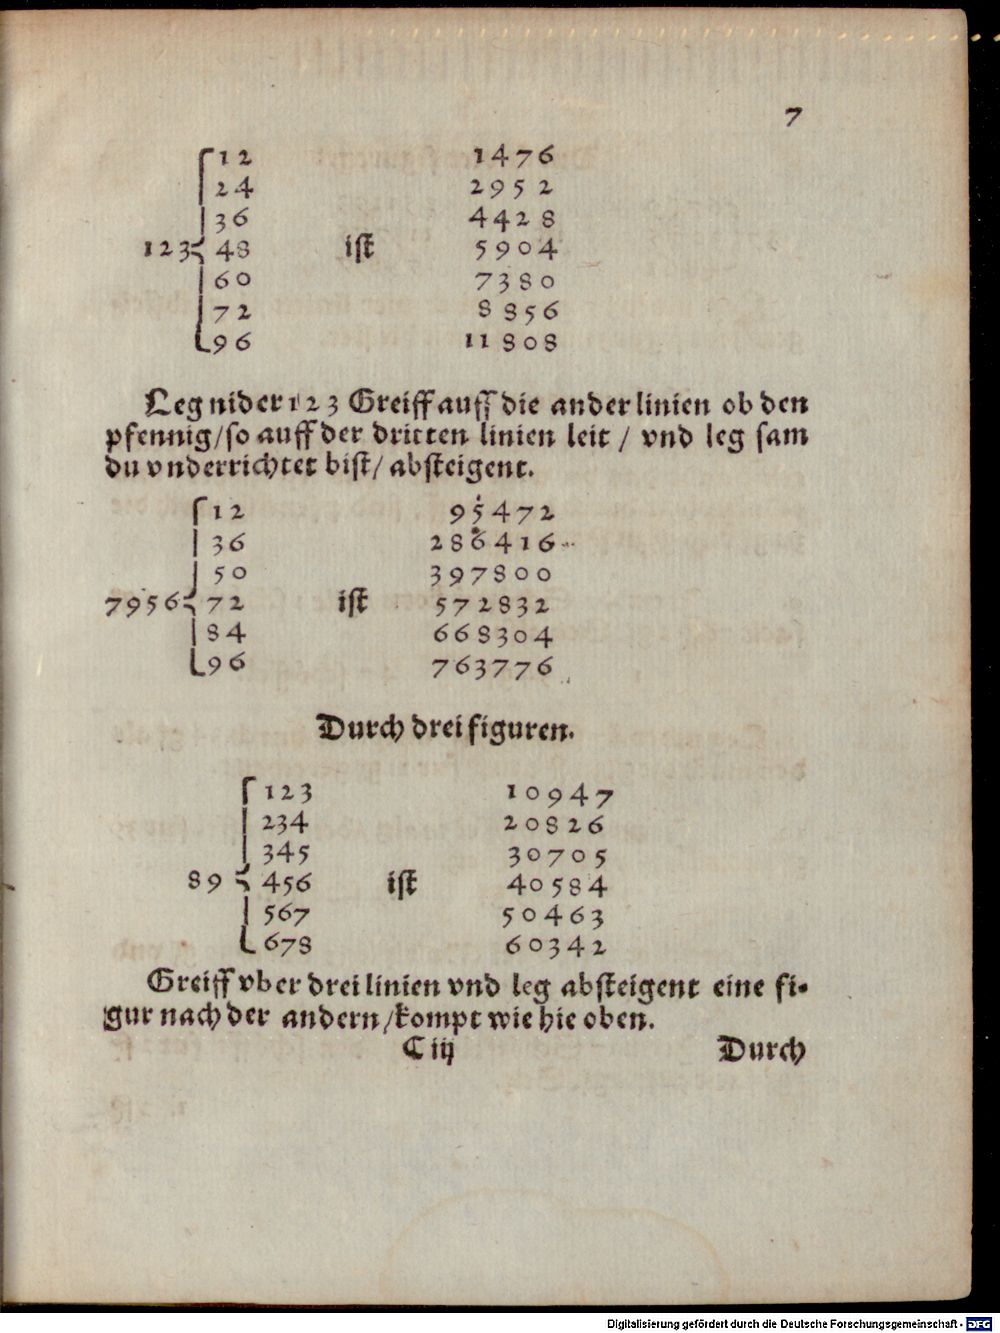 7
12 1476
24 2952
36 4428
123 48 ist 5904
60 7380
72 8856
96 11808
Leg nider 123 Greiff auff die ander linien ob den
pfennig/so auff der dritten linien leit / vnd leg sam
du vnderrichtet bist/ absteigent.
12 95472
36 286416
50 397800
7956 72 ist 572832
84 668304
96 763776
Durch drei figuren.
123 10947
234 20826
345 30705
89 456 ist 40584
567 50463
678 60342
Greiff vber drei linien vnd leg absteigent eine fi-
gur nach der andern/kompt wie hie oben.
C iij Durch
Digitalisierung gefördert durch die Deutsche Forschungsgemeinschaft - DFG